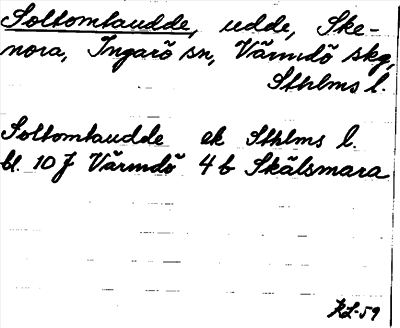 Soltomtaudde, udde, Ske-
nora, Ingarö sn, Värmdö skg,
Sthlms l.
Soltomtaudde ek Sthlms l.
bl. 10 J Värmdö 4 b Skälsmara
KL-59